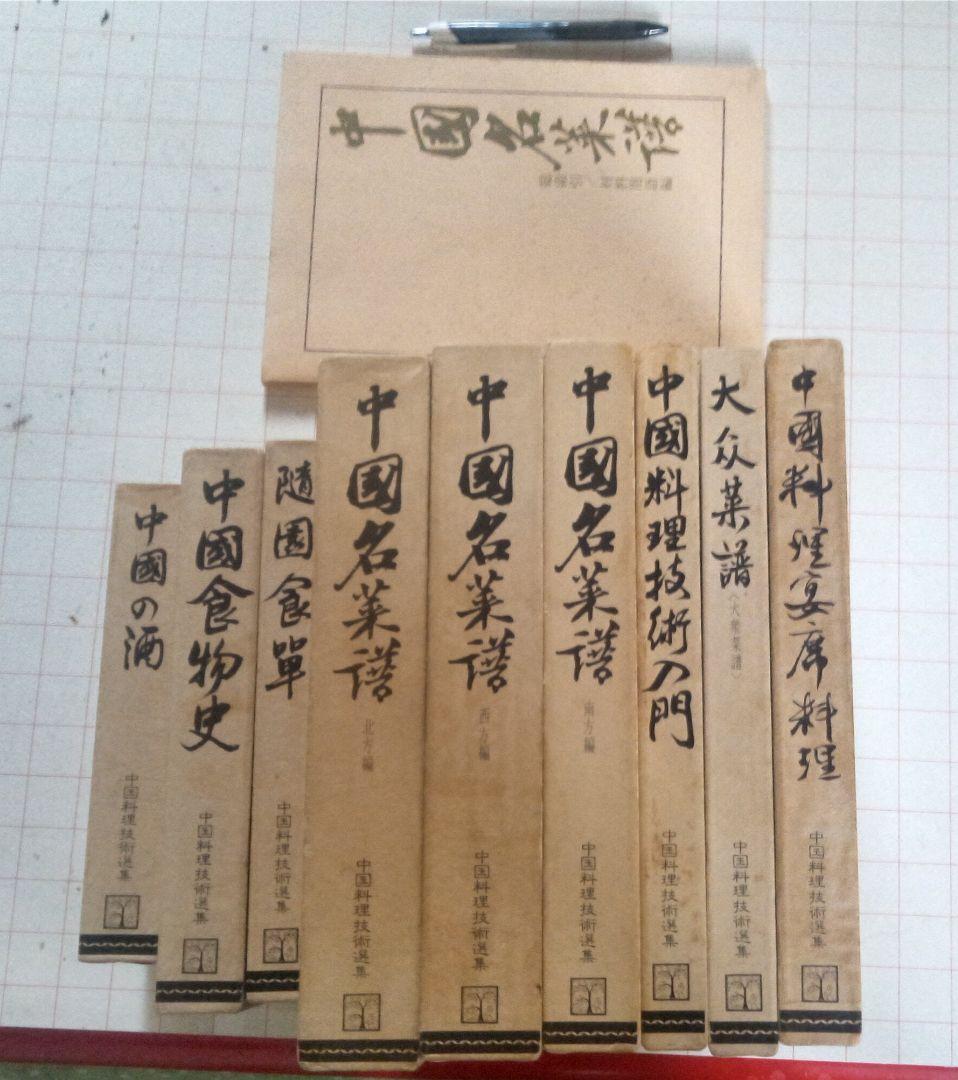 中國名菜譜
中國の酒
中国料理技術選集
中國食物史
中国料理技術選集
隨園食單
中国料理技術選集
中國名菜譜
北方編
中国料理技術選集
中國名菜譜
西方編
中国料理技術選集
中國名菜譜
南方編
中国料理技術選集
中國料理技術入門
中国料理技術選集
大众菜譜
(大衆菜譜)
中国料理技術選集
中國料理宴席料理
中国料理技術選集